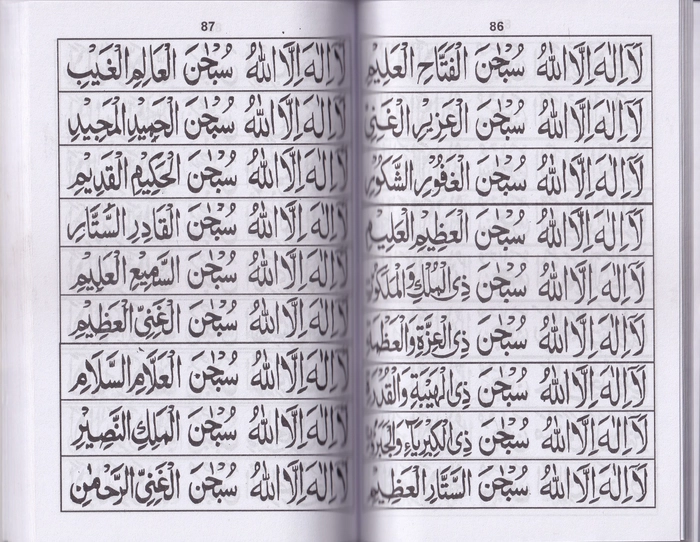 86
لَآ اِلٰهَ اِلَّا اللّٰهُ سُبْحٰنَ الْفَتَّاحِ الْعَلِيْمِ
لَآ اِلٰهَ اِلَّا اللّٰهُ سُبْحٰنَ الْعَزِيْزِ الْغَنِيِّ
لَآ اِلٰهَ اِلَّا اللّٰهُ سُبْحٰنَ الْغَفُوْرِ الشَّكُوْرِ
لَآ اِلٰهَ اِلَّا اللّٰهُ سُبْحٰنَ الْعَظِيْمِ الْعَلِيْمِ
لَآ اِلٰهَ اِلَّا اللّٰهُ سُبْحٰنَ ذِى الْمُلْكِ وَالْمَلَكُوْتِ
لَآ اِلٰهَ اِلَّا اللّٰهُ سُبْحٰنَ ذِى الْعِزَّةِ وَالْعَظَمَةِ
لَآ اِلٰهَ اِلَّا اللّٰهُ سُبْحٰنَ ذِى الْهَيْبَةِ وَالْقُدْرَةِ
لَآ اِلٰهَ اِلَّا اللّٰهُ سُبْحٰنَ ذِى الْكِبْرِيَآءِ وَالْجَبَرُوْتِ
لَآ اِلٰهَ اِلَّا اللّٰهُ سُبْحٰنَ السَّتَّارِ الْعَظِيْمِ
87
لَآ اِلٰهَ اِلَّا اللّٰهُ سُبْحٰنَ الْعَالِمِ الْغَيْبِ
لَآ اِلٰهَ اِلَّا اللّٰهُ سُبْحٰنَ الْحَمِيْدِ الْمَجِيْدِ
لَآ اِلٰهَ اِلَّا اللّٰهُ سُبْحٰنَ الْحَكِيْمِ الْقَدِيْمِ
لَآ اِلٰهَ اِلَّا اللّٰهُ سُبْحٰنَ الْقَادِرِ السَّتَّارِ
لَآ اِلٰهَ اِلَّا اللّٰهُ سُبْحٰنَ السَّمِيْعِ الْعَلِيْمِ
لَآ اِلٰهَ اِلَّا اللّٰهُ سُبْحٰنَ الْغَنِيِّ الْعَظِيْمِ
لَآ اِلٰهَ اِلَّا اللّٰهُ سُبْحٰنَ الْعَلَّامِ السَّلَامِ
لَآ اِلٰهَ اِلَّا اللّٰهُ سُبْحٰنَ الْمَلِكِ النَّصِيْرِ
لَآ اِلٰهَ اِلَّا اللّٰهُ سُبْحٰنَ الْغَنِيِّ الرَّحْمٰنِ